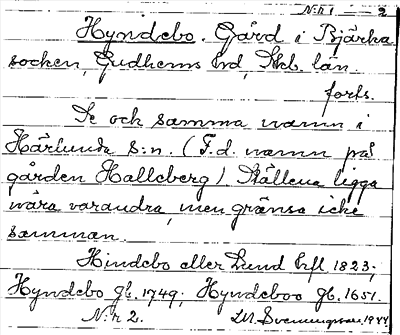 N:r 1 2
Hyndebo. Gård i Bjärka
socken, Gudhems hd, Skb. län.
forts.
Se och samma namn i
Härlunda s:n. (F.d. namn på
gården Halleberg). Ställena ligga
nära varandra, men gränsa icke
samman.
Hindebo eller Lund hfl. 1823;
Hyndebo jb. 1749; Hyndeboo jb. 1651.
N:r 2. D.M. Svenningsson 1944